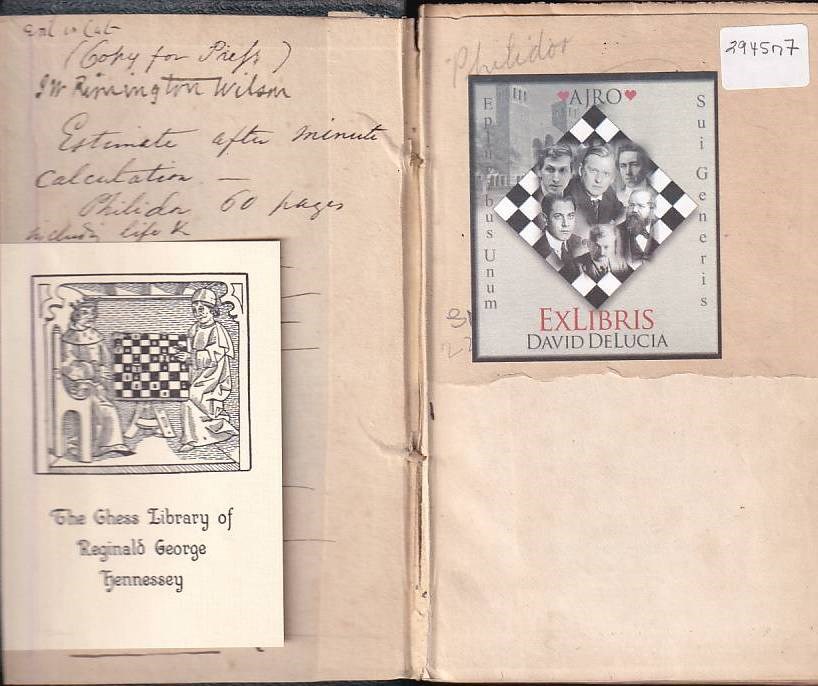 (Copy for Press)
J W Rimington Wilson
Estimate after minute
calculation —
Philidor 60 pages
including life &
The Chess Library of
Reginald George
Hennessey
Philidor
294517
AJRO
E Pluribus Unum
Sui Generis
EXLIBRIS
DAVID DELUCIA